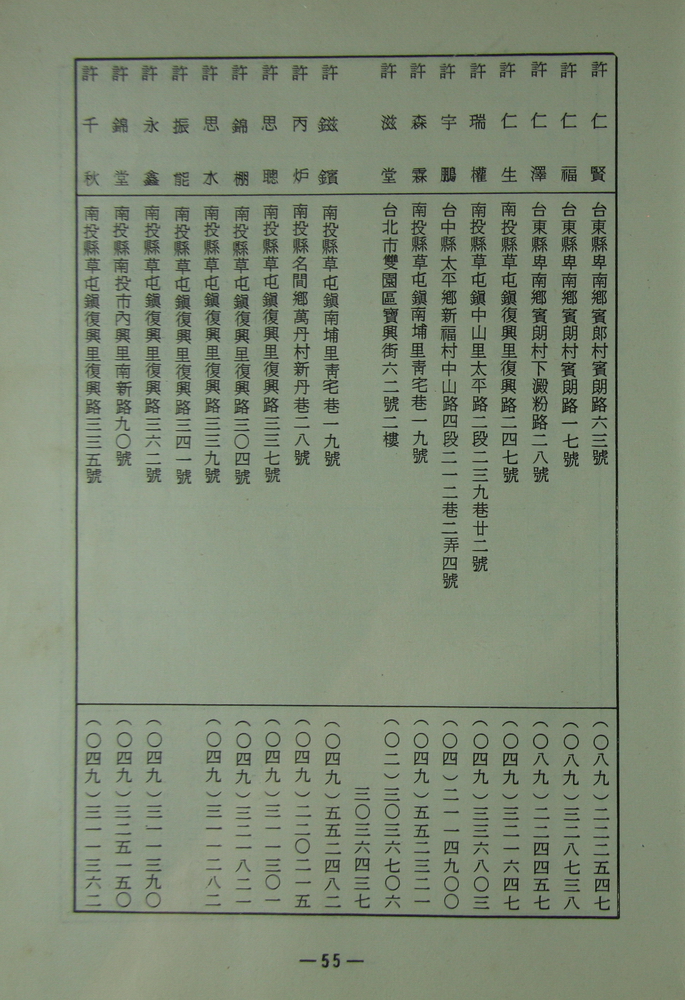 許仁賢 台東縣卑南鄉賓郎村賓朗路六三號 (〇八九)二二二五四七
許仁福 台東縣卑南鄉賓朗村賓朗路一七號 (〇八九)三二八七三八
許仁澤 台東縣卑南鄉賓朗村下澱粉路二八號 (〇八九)二二四四五七
許仁生 南投縣草屯鎮復興里復興路二四七號 (〇四九)三二一六四七
許瑞權 南投縣草屯鎮中山里太平路二段二三九巷廿二號 (〇四九)三三六八〇三
許宇鵬 台中縣太平鄉新福村中山路四段二一二巷二弄四號 (〇四)二一一四九〇〇
許森霖 南投縣草屯鎮南埔里靑宅巷一九號 (〇四九)五五二三二一
許滋堂 台北市雙園區寶興街六二號二樓 (〇二)三〇三六七〇六
三〇三六四三七
許鎡鑌 南投縣草屯鎮南埔里靑宅巷一九號 (〇四九)五五二四八二
許丙炉 南投縣名間鄉萬丹村新丹巷二八號 (〇四九)二二〇二一五
許思聰 南投縣草屯鎮復興里復興路三三七號 (〇四九)三一一三〇一
許錦棚 南投縣草屯鎮復興里復興路三〇四號 (〇四九)三二一八二一
許思水 南投縣草屯鎮復興里復興路三三九號 (〇四九)三一一二八二
許振能 南投縣草屯鎮復興里復興路三四一號
許永鑫 南投縣草屯鎮復興里復興路三六二號 (〇四九)三一一三九〇
許錦堂 南投縣南投市內興里南新路九〇號 (〇四九)三二五一五〇
許千秋 南投縣草屯鎮復興里復興路三三五號 (〇四九)三一一三六二
—55—